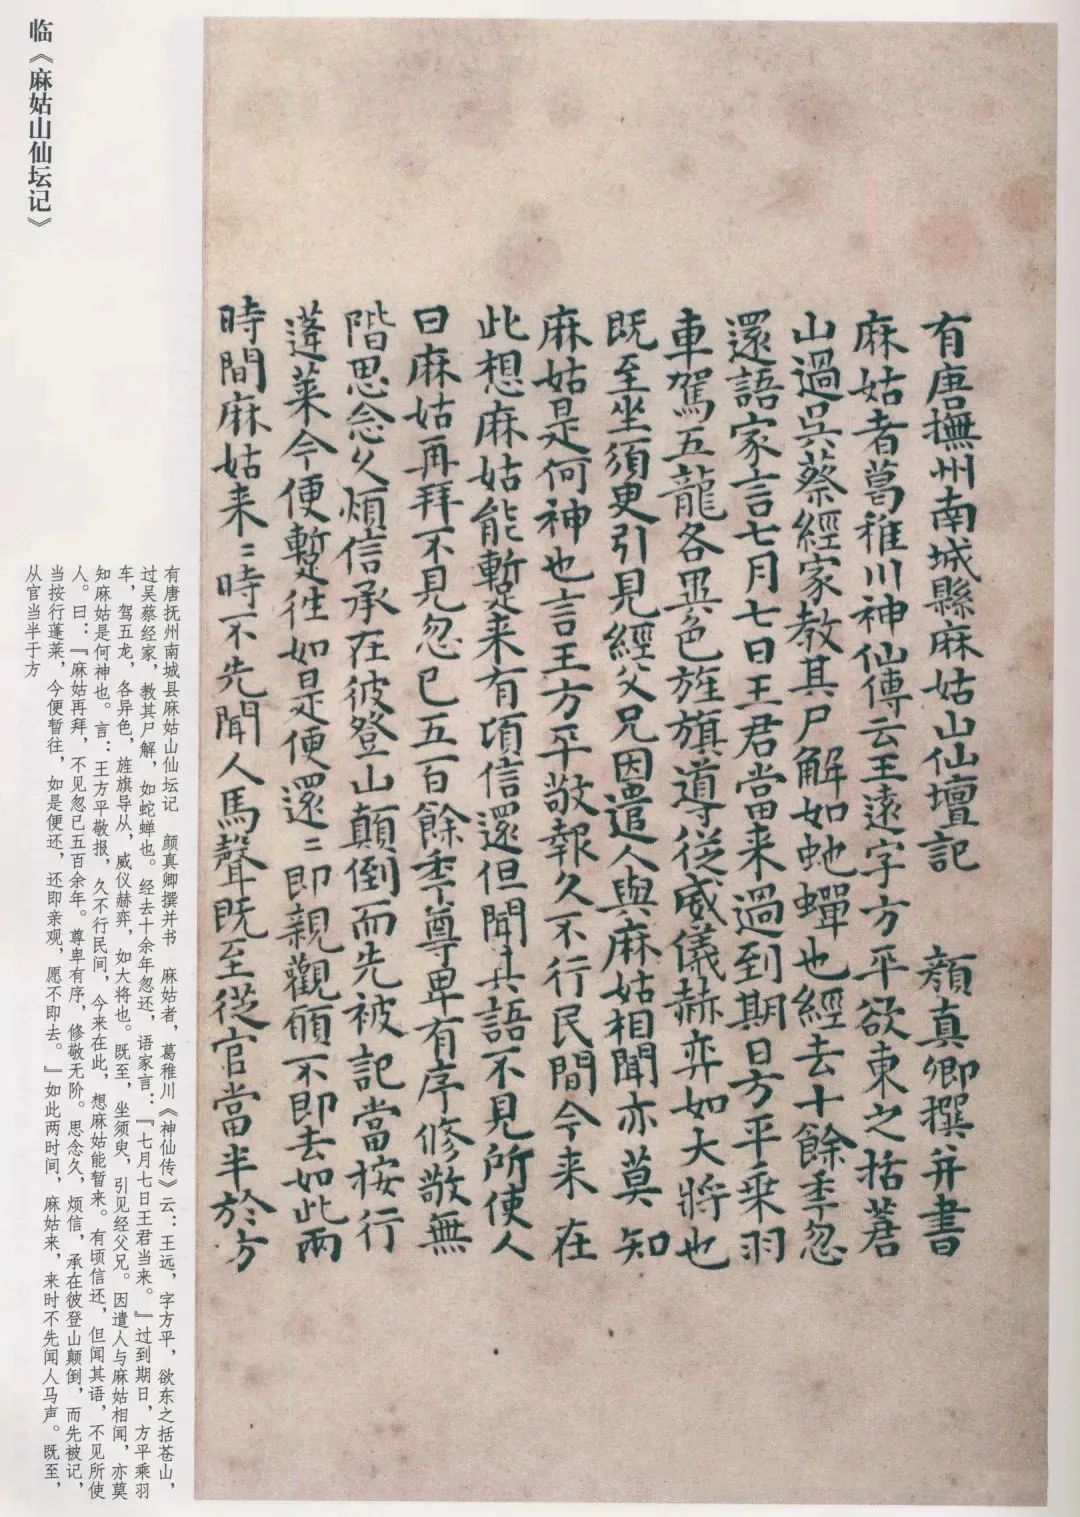 有唐撫州南城縣麻姑山仙壇記　顏真卿撰并書
麻姑者葛稚川神仙傳云王遠字方平欲東之括蒼
山過吳蔡經家教其尸解如虵蟬也經去十餘秊忽
還語家言七月七日王君當来過到期日方平乗羽
車駕五龍各異色旌旗導從威儀赫弈如大將也
既至坐須臾引見經父兄因遣人與麻姑相聞亦莫知
麻姑是何神也言王方平敬報久不行民間今来在
此想麻姑能暫来有頃信還但聞其語不見所使人
曰麻姑再拜不見忽已五百餘秊尊卑有序修敬無
階思念久煩信承在彼登山顛倒而先被記當按行
蓬莱今便暫往如是便還〻即親觀願不即去如此兩
時間麻姑来〻時不先聞人馬聲既至從官當半於方
临《麻姑山仙坛记》
有唐抚州南城县麻姑山仙坛记　颜真卿撰并书　麻姑者，葛稚川《神仙传》云：王远，字方平，欲东之括苍山，
过吴蔡经家，教其尸解，如蛇蝉也。经去十余年忽还，语家言：『七月七日王君当来。』过到期日，方平乘羽
车，驾五龙，各异色，旌旗导从，威仪赫弈，如大将也。既至，坐须臾，引见经父兄。因遣人与麻姑相闻，亦莫
知麻姑是何神也。言：王方平敬报，久不行民间，今来在此，想麻姑能暂来。有顷信还，但闻其语，不见所使
人。曰：『麻姑再拜，不见忽已五百余年。尊卑有序，修敬无阶。思念久，烦信，承在彼登山颠倒，而先被记，
当按行蓬莱，今便暂往，如是便还，还即亲观，愿不即去。』如此两时间，麻姑来，来时不先闻人马声。既至，
从官当半于方